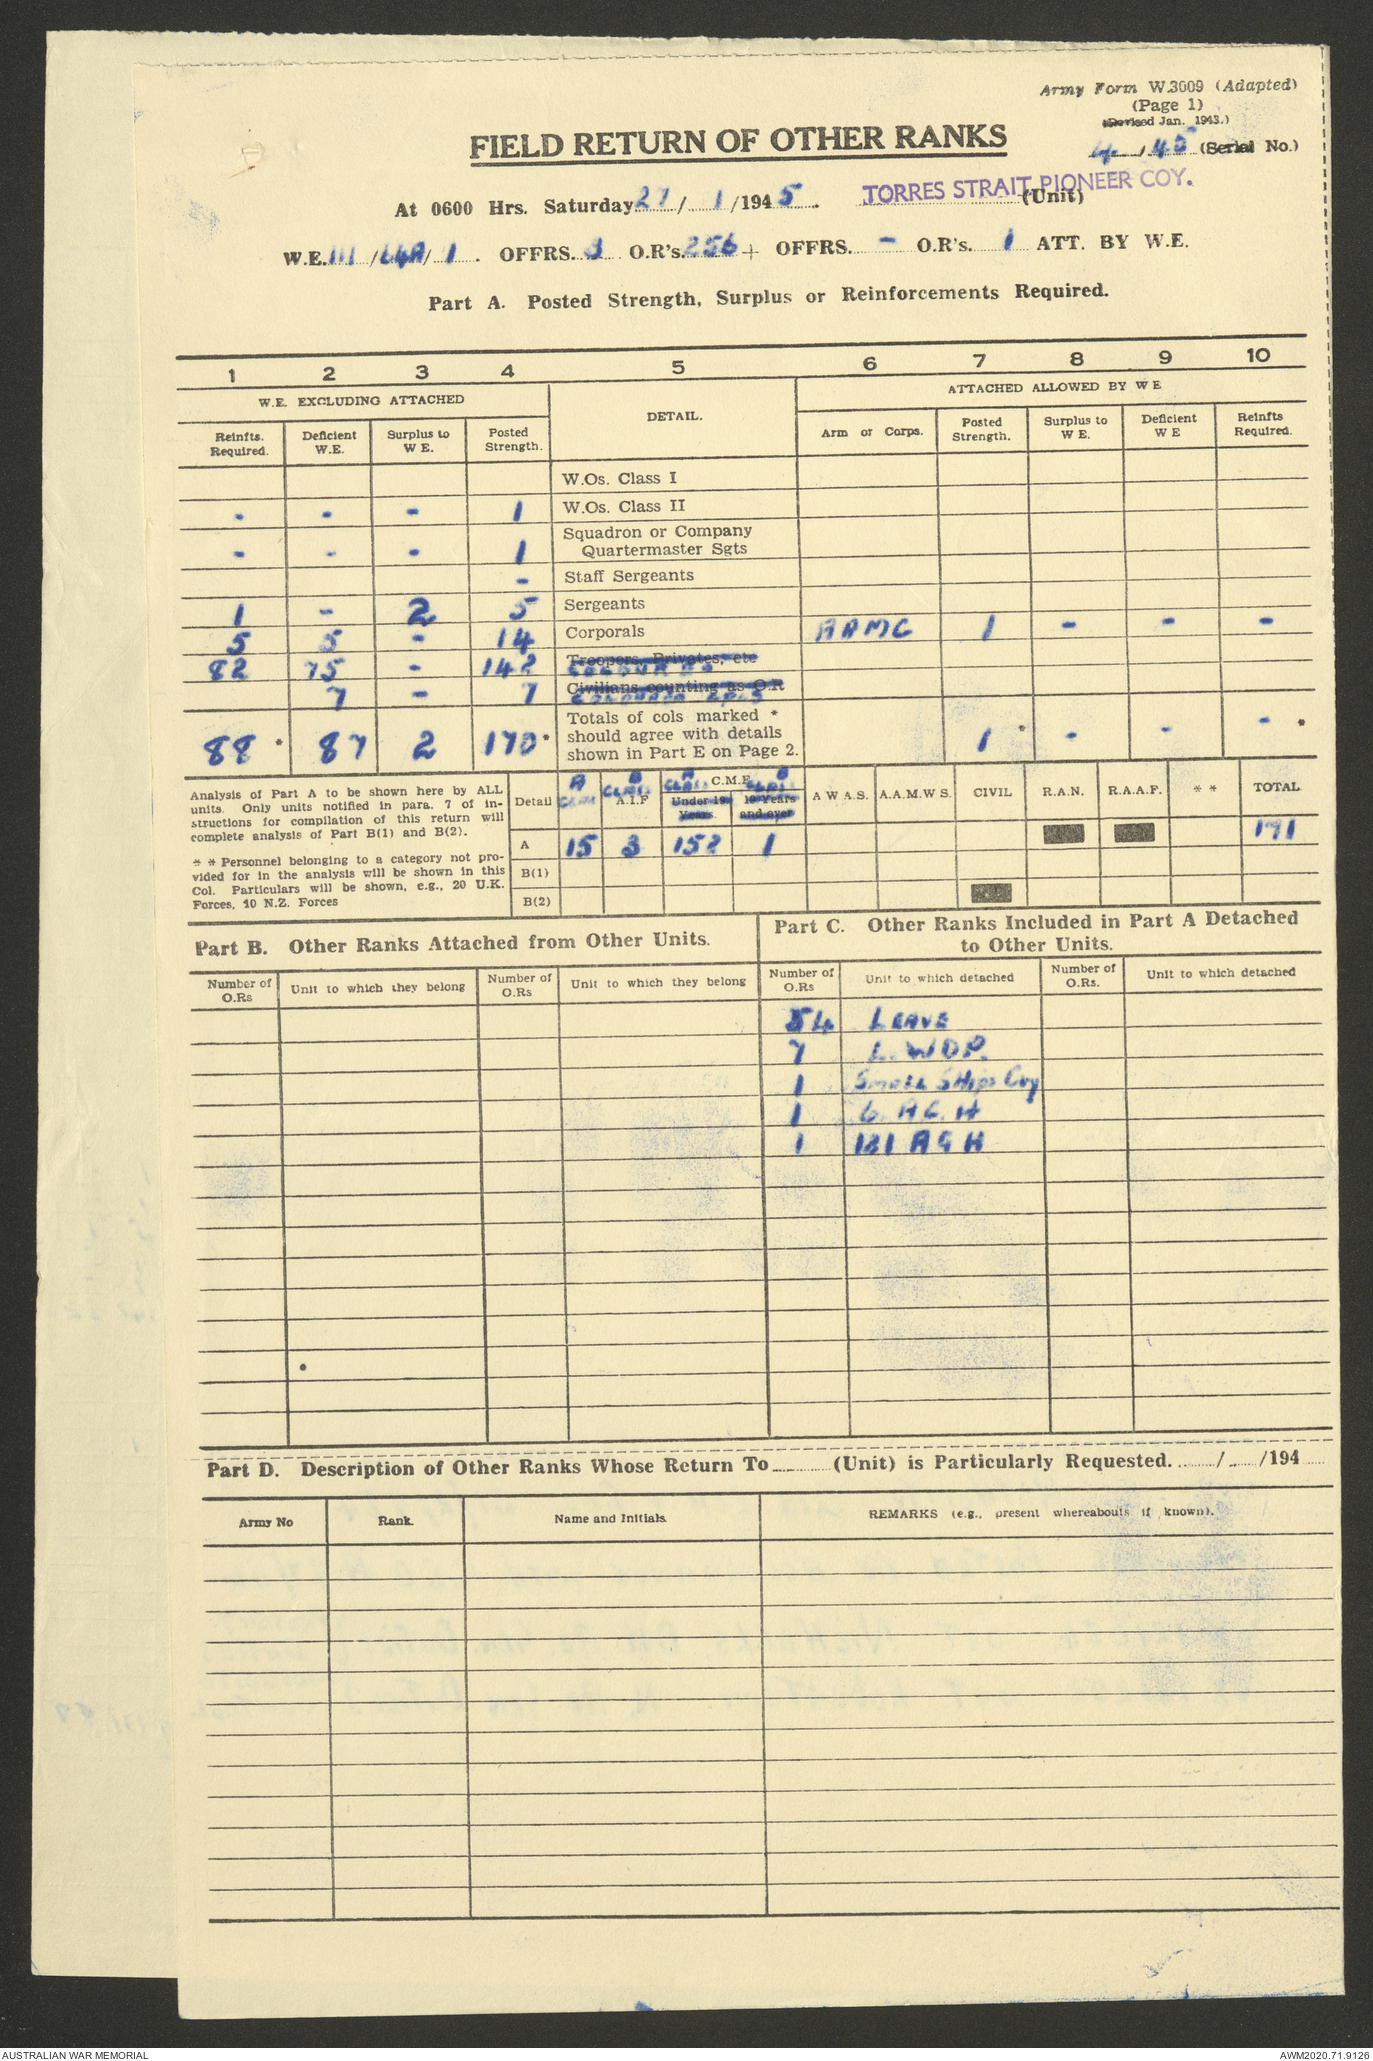 Army Form W.3009 (Adapted)
(Page 1)
(Revised Jan. 1943.)
FIELD RETURN OF OTHER RANKS
4 / 45 (Serial No.)
At 0600 Hrs. Saturday 27 / 1 /1945. TORRES STRAIT PIONEER COY. (Unit)
W.E. III / L4A / 1 . OFFRS. 3 O.R's. 256 + OFFRS. - O.R's. 1 ATT. BY W.E.
Part A. Posted Strength, Surplus or Reinforcements Required.
1 2 3 4 5 6 7 8 9 10
W.E. EXCLUDING ATTACHED DETAIL. ATTACHED ALLOWED BY W E
Reinfts. Required. Deficient W.E. Surplus to W E. Posted Strength. Arm or Corps. Posted Strength. Surplus to W E. Deficient W E Reinfts Required.
W.Os. Class I
- - - 1 W.Os. Class II
Squadron or Company
- - - 1 Quartermaster Sgts
- Staff Sergeants
1 - 2 5 Sergeants
5 5 - 14 Corporals AAMC 1 - - -
82 75 - 142 Troopers, Privates, etc
7 - 7 Civilians counting as O.R
COLOURED CPLS
Totals of cols marked *
should agree with details
88 * 87 2 170 * shown in Part E on Page 2. 1 * - - - *
Analysis of Part A to be shown here by ALL
units. Only units notified in para. 7 of in-
structions for compilation of this return will
complete analysis of Part B(1) and B(2).
* * Personnel belonging to a category not pro-
vided for in the analysis will be shown in this
Col. Particulars will be shown, e.g., 20 U.K.
Forces, 10 N.Z. Forces
Detail A CLASS B CLASS A.I.F A CLASS C.M.F. B CLASS Under 19 Years 19 Years and over A W A S. A.A.M.W S. CIVIL R.A.N. R.A.A.F. * * TOTAL
A 15 3 152 1 171
B(1)
B(2)
Part B. Other Ranks Attached from Other Units.
Part C. Other Ranks Included in Part A Detached
to Other Units.
Number of O.Rs Unit to which they belong Number of O.Rs Unit to which they belong Number of O.Rs Unit to which detached Number of O.Rs. Unit to which detached
54 LEAVE
7 L.WOP.
1 Small Ships Coy
1 A C H
1 121 A G H
Part D. Description of Other Ranks Whose Return To (Unit) is Particularly Requested. / /194
Army No Rank. Name and Initials. REMARKS (e.g., present whereabouts if known).
AUSTRALIAN WAR MEMORIAL AWM2020.71.9126